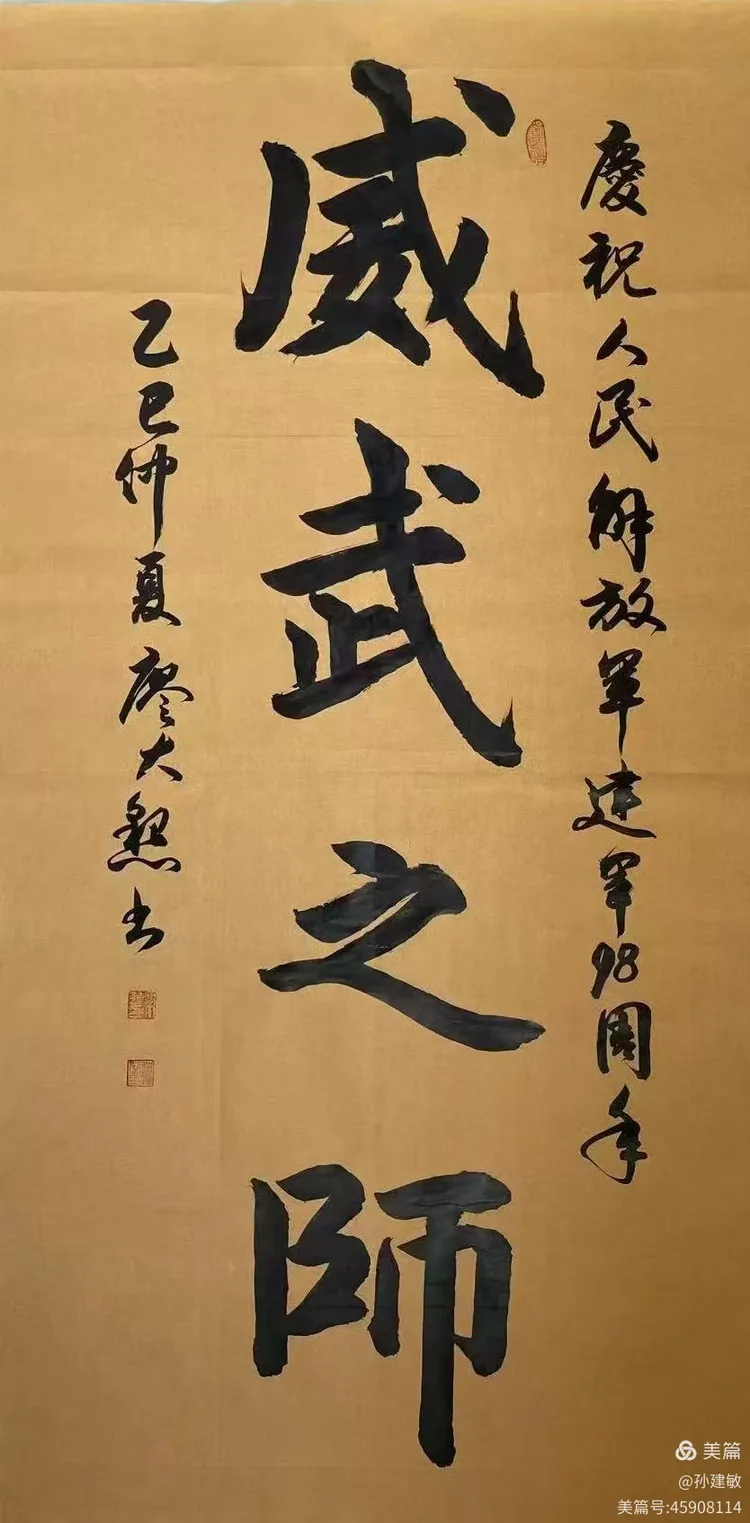 慶祝人民解放軍建軍98周年
威武之師
乙巳仲夏廖大懃书
美篇
@孙建敏
美篇号:45908114